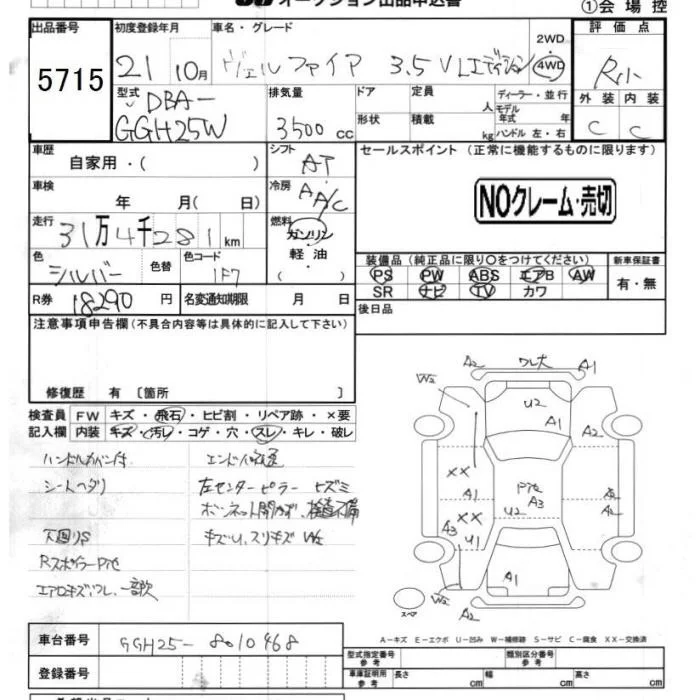 オークション出品申込書
①会場控
出品番号 初度登録年月 車名・グレード 評価点
5715 21 10月 ヴェルファイア 3.5 V Lエディション 2WD 4WD R小
型式 DBA- GGH25W 排気量 3500 cc ドア 定員 人 ディーラー・並行 外装 内装
形状 積載 kg モデル年式 年 ハンドル 左・右 C C
車歴 自家用・( ) シフト AT セールスポイント (正常に機能するものに限ります)
車検 年 月( 日) 冷房 AA/C NOクレーム・売切
走行 31万4千281km 燃料 ガソリン・軽油 ( )
色 シルバー 色替 色コード 1F7 装備品 (純正品に限り〇をつけてください) 新車保証書
PS PW ABS エアB AW 有・無
SR ナビ TV カワ
R券 18290円 名変通知期限 月 日 後日品
注意事項申告欄(不具合内容等は具体的に記入して下さい)
修復歴 有 〔箇所 〕
検査員 FW キズ・飛石・ヒビ割・リペア跡・×要
記入欄 内装 キズ・汚レ・コゲ・穴・スレ・キレ・破レ
シートヘタリ 左センターピラー ヒズミ
ボンネット開かず、検査不備
下廻りS キズU、スリキズ W2
RスポイラーPハゲ
W2 A2 ワレ大 A1
U2 A1 A2
XX A1 A3 A2
XX A3 U1 U2
A1
W2 A2
スペア
A-キズ E-エクボ U-凹み W-補修跡 S-サビ C-腐食 XX-交換済
車台番号 GGH25-8010468
型式指定番号 参考 類別区分番号 参考
登録番号 車庫証明用 参考 長さ cm 幅 cm 高さ cm